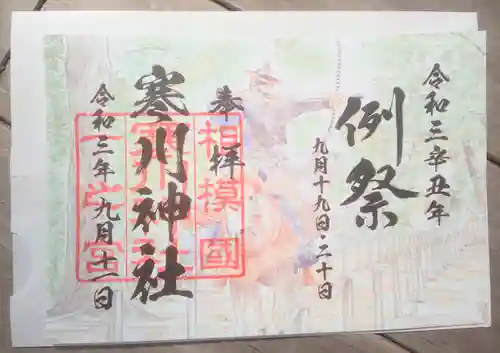 令和三辛丑年
例祭
九月十九日・二十日
奉拝
相模國
一之宮
寒川神社
令和三年九月十一日